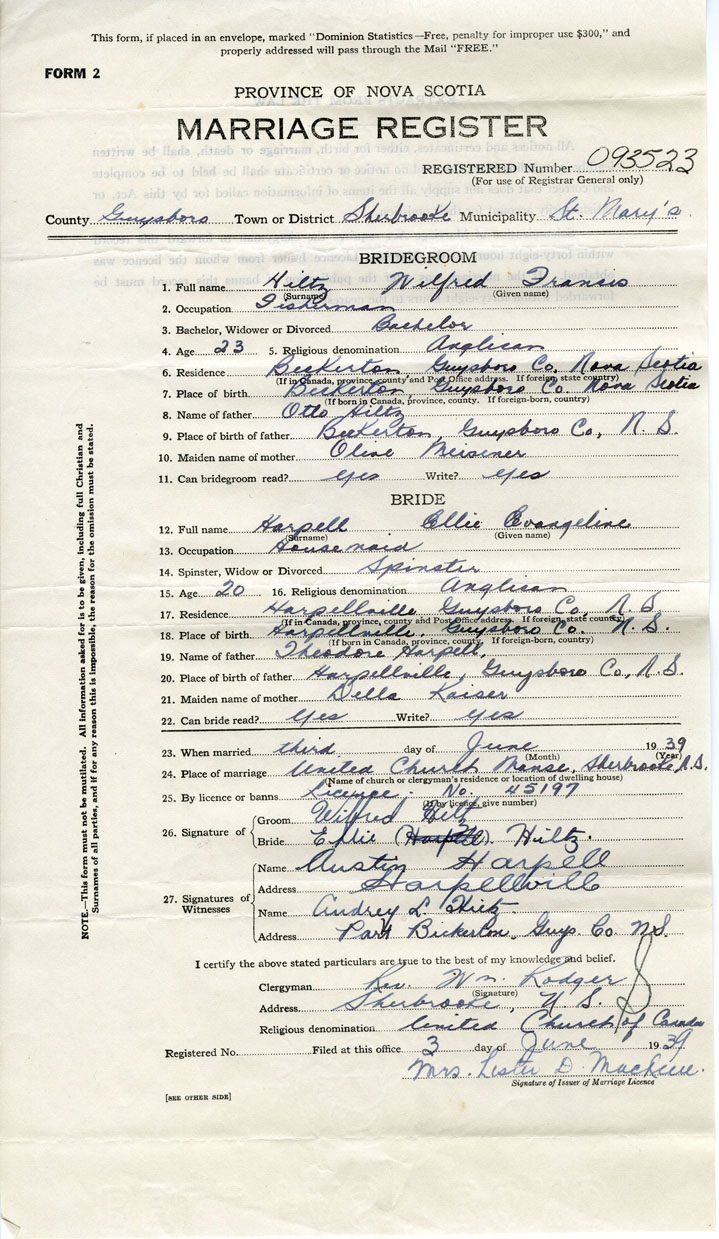 This form, if placed in an envelope, marked "Dominion Statistics—Free, penalty for improper use $300," and
properly addressed will pass through the Mail "FREE."
FORM 2
PROVINCE OF NOVA SCOTIA
MARRIAGE REGISTER
REGISTERED Number 093523
(For use of Registrar General only)
County Guysboro Town or District Sherbrooke Municipality St. Mary's
BRIDEGROOM
1. Full name Hiltz Wilfred Francis
(Surname) (Given name)
2. Occupation Fisherman
3. Bachelor, Widower or Divorced Bachelor
4. Age 23 5. Religious denomination Anglican
6. Residence Beckerton, Guysboro Co. Nova Scotia
(If in Canada, province, county and Post Office address. If foreign, state country)
7. Place of birth Beckerton, Guysboro Co. Nova Scotia
(If born in Canada, province, county. If foreign-born, country)
8. Name of father Otto Hiltz
9. Place of birth of father Beckerton, Guysboro Co, N.S.
10. Maiden name of mother Olive Meisener
11. Can bridegroom read? yes Write? yes
BRIDE
12. Full name Harpell Effie Evangeline
(Surname) (Given name)
13. Occupation Housemaid
14. Spinster, Widow or Divorced Spinster
15. Age 20 16. Religious denomination Anglican
17. Residence Harpellville, Guysboro Co, N.S.
(If in Canada, province, county and Post Office address. If foreign, state country)
18. Place of birth Harpellville, Guysboro Co. N.S.
(If born in Canada, province, county. If foreign-born, country)
19. Name of father Theodore Harpell,
20. Place of birth of father Harpellville, Guysboro Co, N.S.
21. Maiden name of mother Della Kaiser
22. Can bride read? yes Write? yes
23. When married third day of June 1939
(Month) (Year)
24. Place of marriage United Church Manse, Sherbrooke, N.S.
(Name of church or clergyman's residence or location of dwelling house)
25. By licence or banns Licence. No. 45197
(If by licence, give number)
26. Signature of
Groom Wilfred Hiltz
Bride Effie (Harpell) Hiltz.
27. Signatures of Witnesses
Name Austin Harpell
Address Harpellville
Name Audrey L. Hiltz.
Address Port Bickerton, Guys. Co. N.S.
I certify the above stated particulars are true to the best of my knowledge and belief.
Clergyman Rev. Wm. Rodger
(Signature)
Address Sherbrooke, N.S.
Religious denomination United Church of Canada
Registered No. Filed at this office 3 day of June 1939
Mrs. Lester D.
Signature of Issuer of Marriage Licence
[SEE OTHER SIDE]
NOTE.—This form must not be mutilated. All information asked for is to be given, including full Christian and
Surnames of all parties, and if for any reason this is impossible, the reason for the omission must be stated.